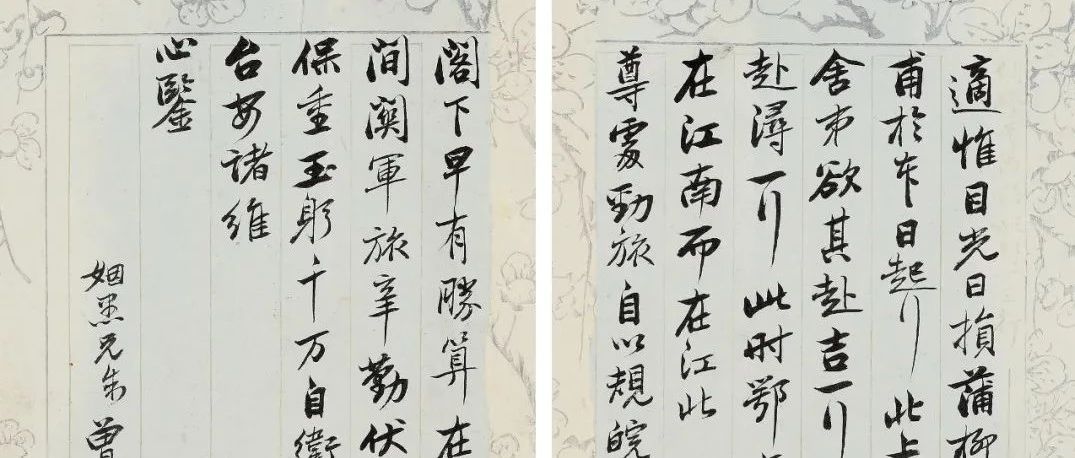 適惟目光日損蒲柳
甫於本日起行此上
舍弟欲其赴吉一行
赴潯一行此时鄂
在江南而在江北
尊處勁旅自以規皖
閣下早有勝算在
間關軍旅辛勤伏
保重玉躬千万自衛
台安諸維
心鑒
姻愚兄朱曾